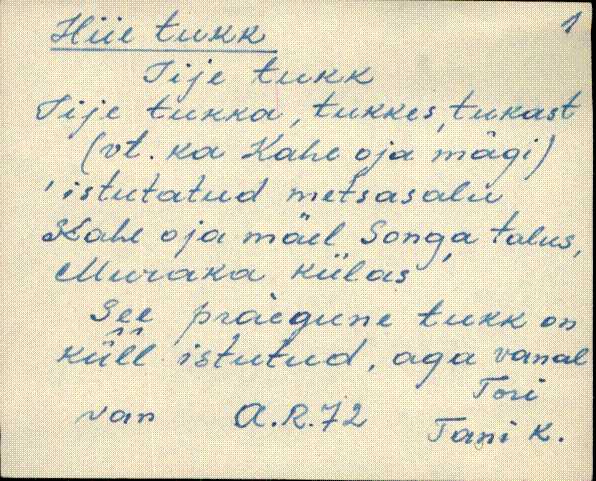 Hiie tukk 1
Iije tukk
Iije tukka, tukkes, tukast
(vt. ka Kahe oja mägi)
'istutatud metsasalu
Kahe oja mäel Songa talus,
Muraka külas
See praegune tukk on
küll istutud, aga vanal
Tori
van A.R.72 Tani k.